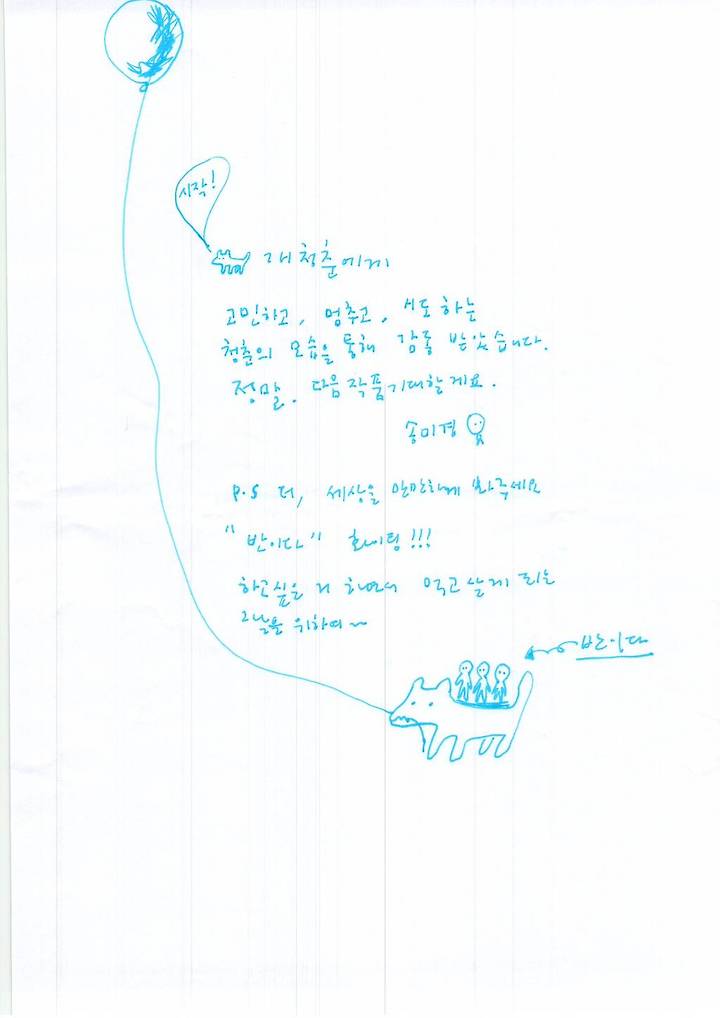 시작!
개청춘에게
고민하고, 멈추고, 시도 하는
청춘의 모습을 통해 감동 받았습니다.
정말. 다음 작품 기대할게요.
송미경
P.S 더, 세상을 만만하게 봐주세요
"반이다" 화이팅!!!
하고싶은 거 하면서 먹고 살게 되는
그날을 위하여~
반이다